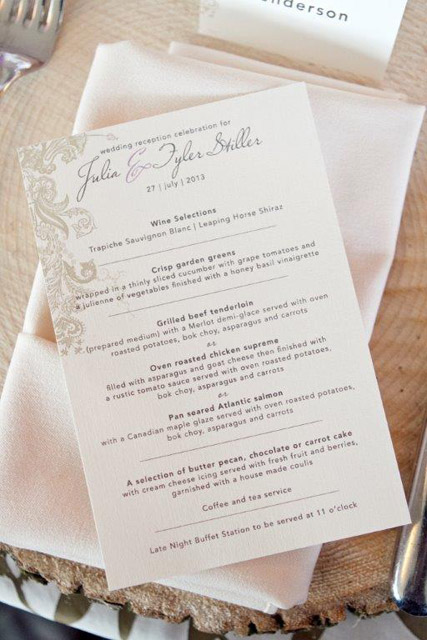 enderson
wedding reception celebration for
Julia & Tyler Stiller
27 | july | 2013
Wine Selections
Trapiche Sauvignon Blanc | Leaping Horse Shiraz
Crisp garden greens
wrapped in a thinly sliced cucumber with grape tomatoes and
a julienne of vegetables finished with a honey basil vinaigrette
Grilled beef tenderloin
(prepared medium) with a Merlot demi-glace served with oven
roasted potatoes, bok choy, asparagus and carrots
or
Oven roasted chicken supreme
filled with asparagus and goat cheese then finished with
a rustic tomato sauce served with oven roasted potatoes,
bok choy, asparagus and carrots
or
Pan seared Atlantic salmon
with a Canadian maple glaze served with oven roasted potatoes,
bok choy, asparagus and carrots
A selection of butter pecan, chocolate or carrot cake
with cream cheese icing served with fresh fruit and berries,
garnished with a house made coulis
Coffee and tea service
Late Night Buffet Station to be served at 11 o'clock